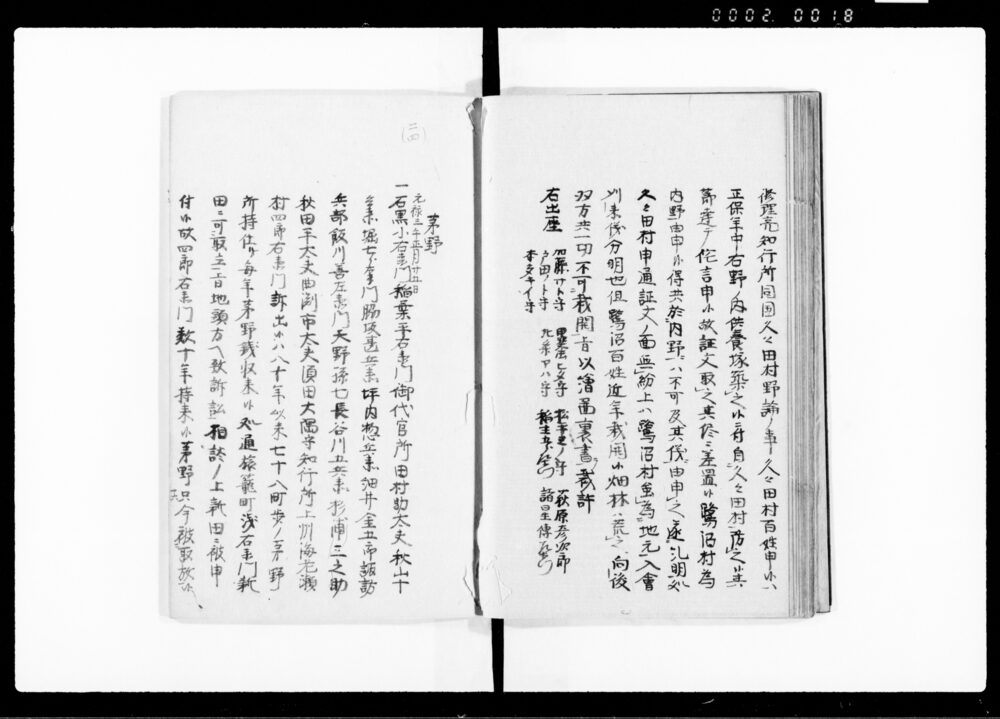 0002 0018
修理亮知行所同国久々田村野論ノ事久々田村百姓申小ハ
正保年中右野ノ内供養塚築之小ニ付自久々田村防之小其
節達テ侘言申小故証文取之其侭ニ差置小鷺沼村為
内野由申小得共於内野ハ不可及其儀申之遂糺明処
久々田村申通証文ノ面無紛上ハ鷺沼村雖為地元入會
刈来儀分明也但鷺沼百姓近年栽開小畑林ハ荒之向後
双方共一切不可栽開旨以繪圖裏書裁許
右出座
加藤サト守
戸田ノト守
本多キイ守
松平ミノ守
稲生五郎左衛門
萩原彦次郎
諸星傳左衛門
(二四)
茅野
元禄三年正月廿五日
一石黒小右衛門稲葉平右衛門御代官所田村助太夫秋山十
兵衛堀七郎右衛門脇坂甚兵衛坪内惣兵衛細井金五郎諏訪
兵部飯川善左衛門天野孫七長谷川五兵衛杉浦三之助
秋田平太夫曲渕市太夫須田大隅守知行所上州海老瀬
村四郎右衛門訴出小ハ八十年以来七十八町歩ノ茅野
所持仕リ毎年茅野銭収来小処通旅籠町浅右衛門新
田ニ可取立旨地頭方ヘ致訴訟相談ノ上新田ニ被申
付小故四郎右衛門数十年持来小茅野只今被取放小